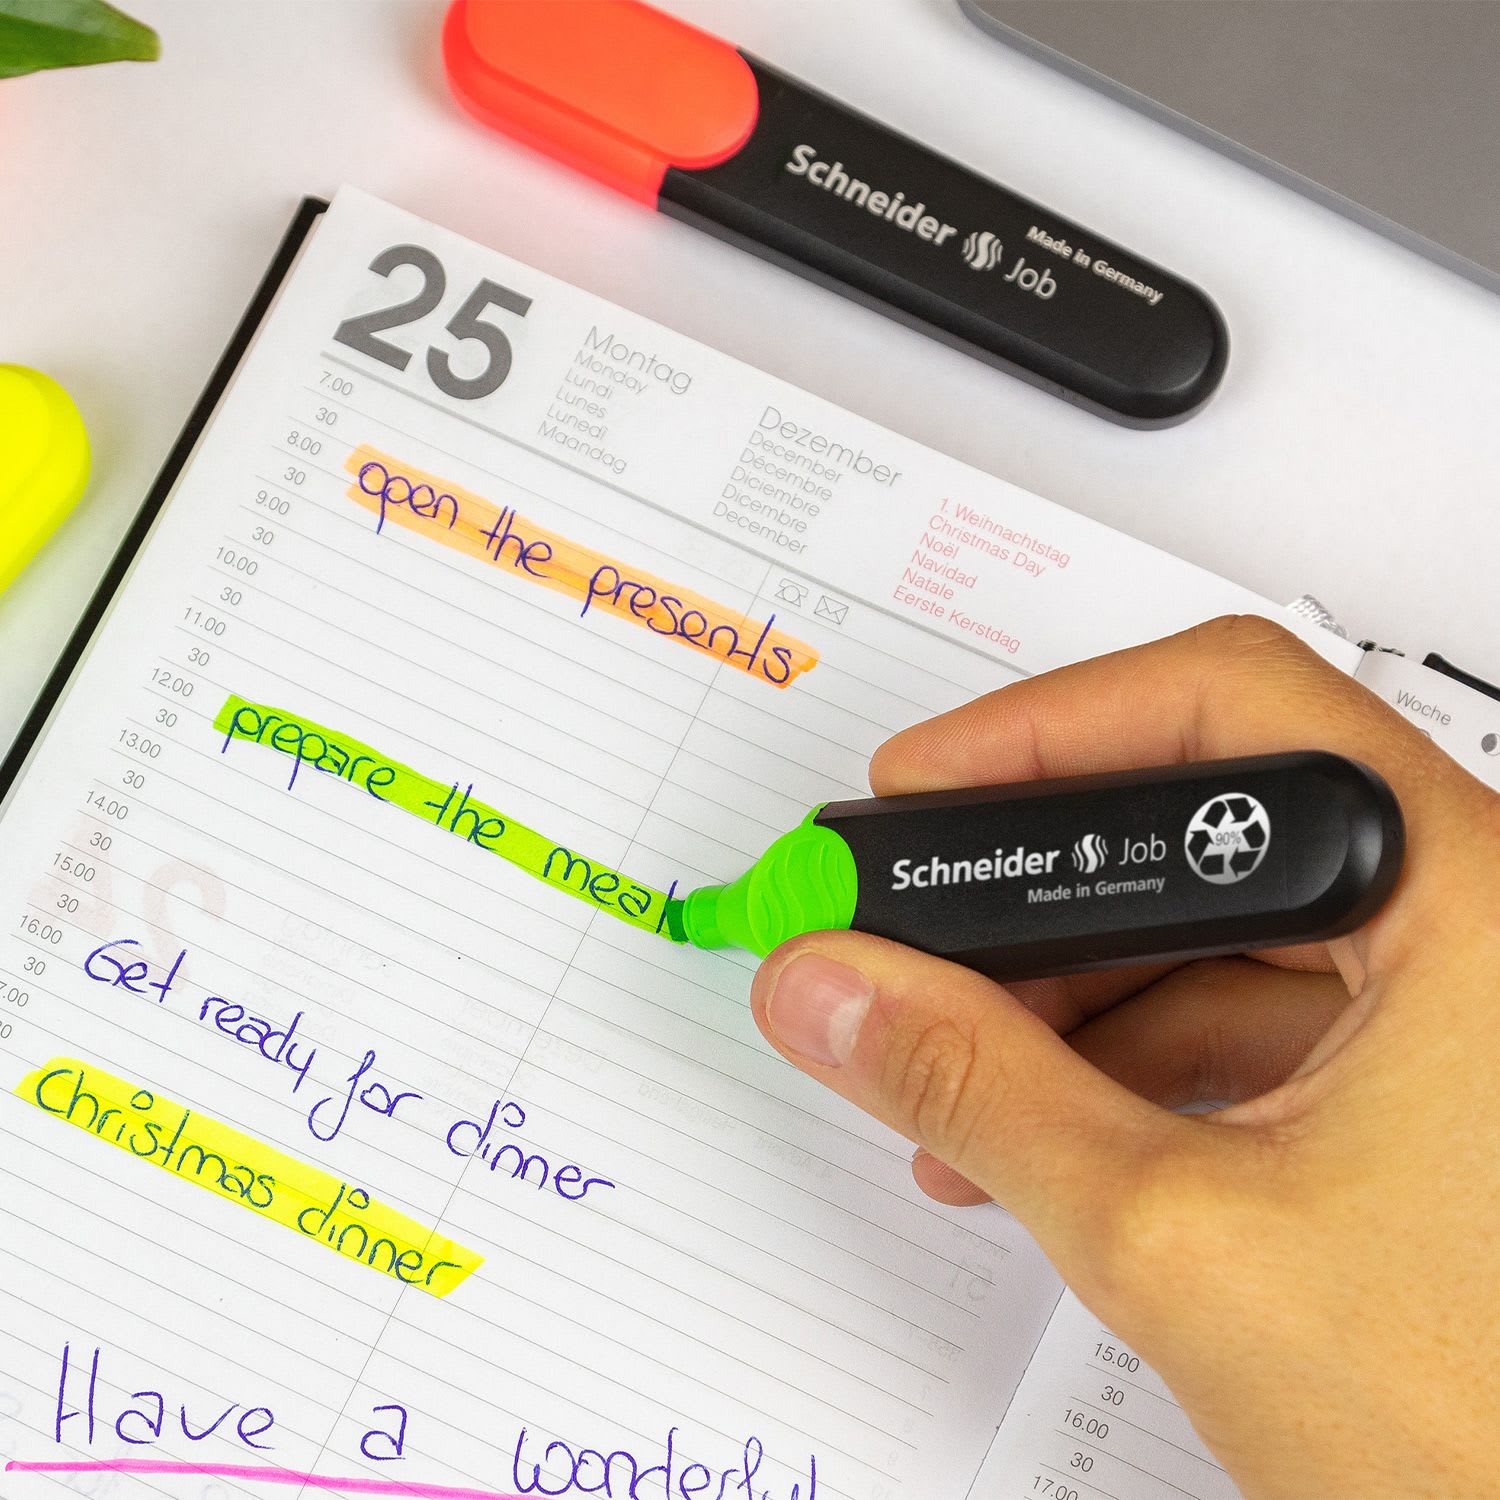 Schneider Job
Made in Germany
25
Montag
Monday
Lundi
Lunes
Lunedì
Maandag
Dezember
December
Décembre
Diciembre
Dicembre
December
1. Weihnachtstag
Christmas Day
Noël
Navidad
Natale
Eerste Kerstdag
7.00
30
8.00
30
9.00
30
10.00
30
11.00
30
12.00
30
13.00
30
14.00
30
15.00
30
16.00
30
7.00
30
open the presents
prepare the meal
Get ready for dinner
Christmas dinner
Have a wonderful
Schneider Job 90%
Made in Germany
Woche
15.00
30
16.00
30
17.00